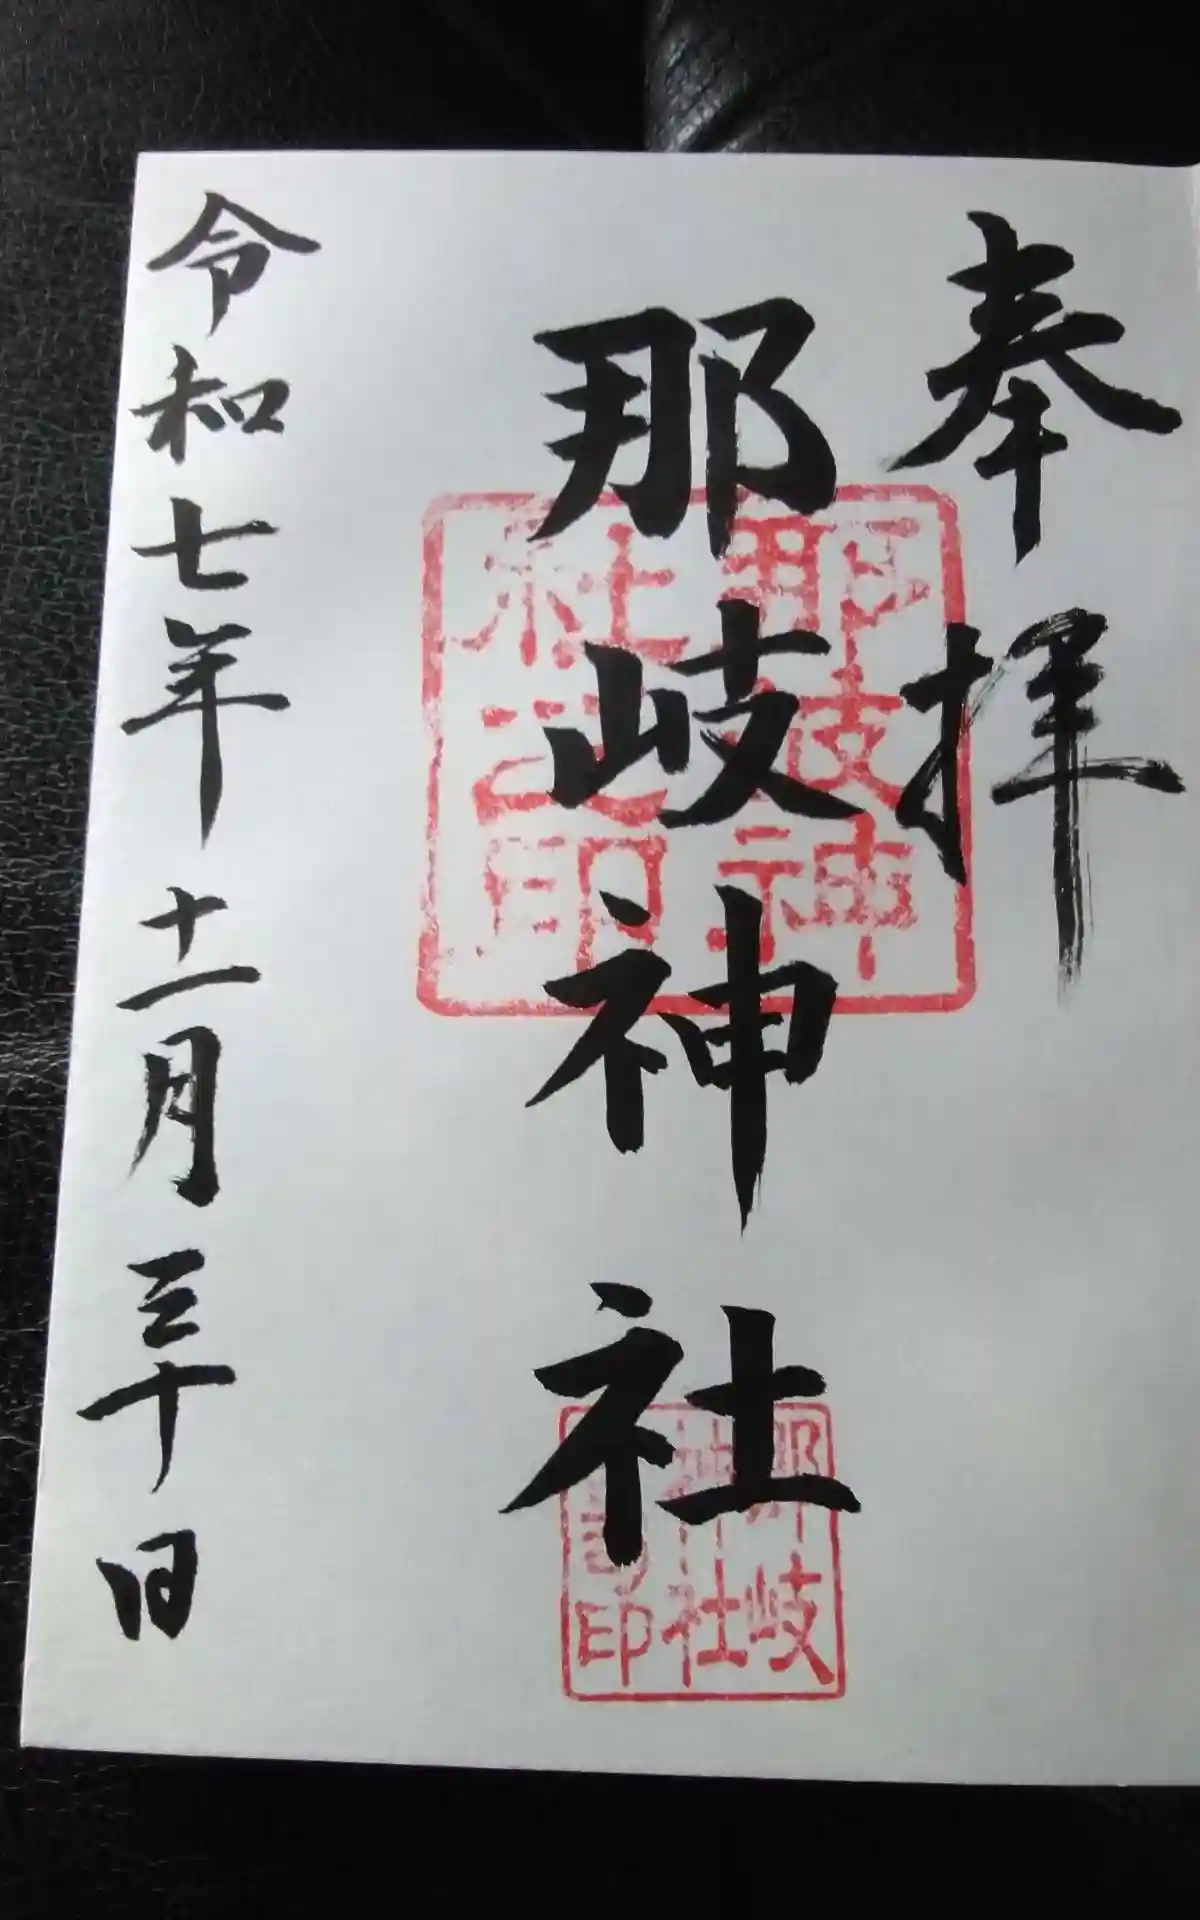 奉拝
那岐神社
那岐神
社之印
那岐
神社
印
令和七年十一月三十日